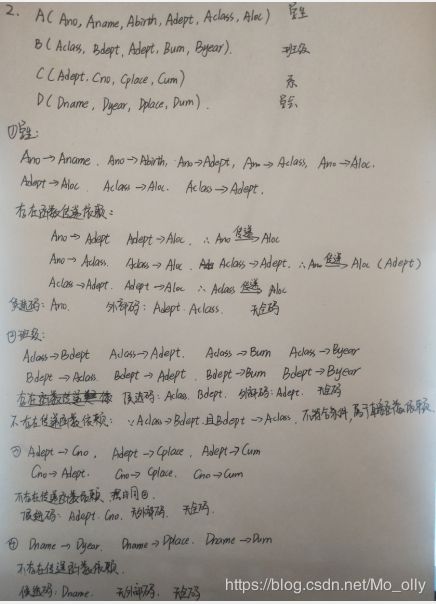 2. A(Ano, Aname, Abirth, Adept, Aclass, Aloc) 学生
B(Aclass, Bdept, Adept, Bum, Byear). 班级
C(Adept, Cno, Cplace, Cum) 系
D(Dname, Dyear, Dplace, Dum). 学会
①学生:
Ano→Aname. Ano→Abirth, Ano→Adept, Ano→Aclass, Ano→Aloc.
Adept→Aloc. Aclass→Aloc. Aclass→Adept.
存在函数传递依赖:
Ano→Adept Adept→Aloc. ∴Ano 传递→ Aloc
Ano→Aclass. Aclass→Aloc. Aclass→Adept. ∴Ano 传递→ Aloc (Adept)
Aclass→Adept. Adept→Aloc ∴Aclass 传递→ Aloc
候选码: Ano. 外部码: Adept. Aclass. 无全码
②班级:
Aclass→Bdept Aclass→Adept. Aclass→Bum Aclass→Byear
Bdept→Aclass. Bdept→Adept. Bdept→Bum Bdept→Byear
候选码: Aclass, Bdept. 外部码: Adept. 无全码
不存在传递函数依赖: ∵Aclass→Bdept 且 Bdept→Aclass, 不符合条件, 属于直接函数依赖
③ Adept→Cno, Adept→Cplace, Adept→Cum
Cno→Adept. Cno→Cplace. Cno→Cum
不存在传递函数依赖, 理由同②.
候选码: Adept. Cno. 无外部码. 无全码.
④ Dname→Dyear. Dname→Dplace. Dname→Dum
不存在传递函数依赖.
候选码: Dname. 无外部码. 无全码
https://blog.csdn.net/Mo_olly